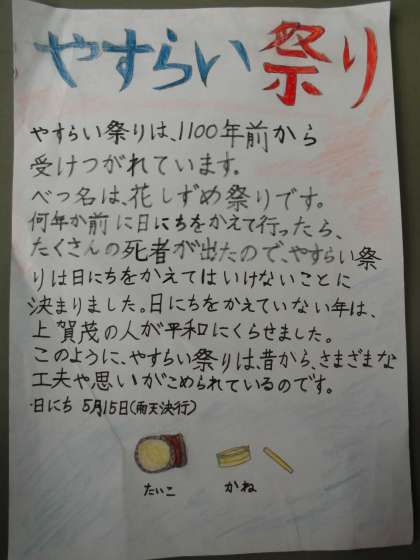 やすらい祭り
やすらい祭りは、1100年前から
受けつがれています。
べつ名は、花しずめ祭りです。
何年か前に日にちをかえて行ったら、
たくさんの死者が出たので、やすらい祭
りは日にちをかえてはいけないことに
決まりました。日にちをかえていない年は、
上賀茂の人が平和にくらせました。
このように、やすらい祭りは、昔から、さまざまな
工夫や思いがこめられているのです。
・日にち 5月15日(雨天決行)
たいこ かね